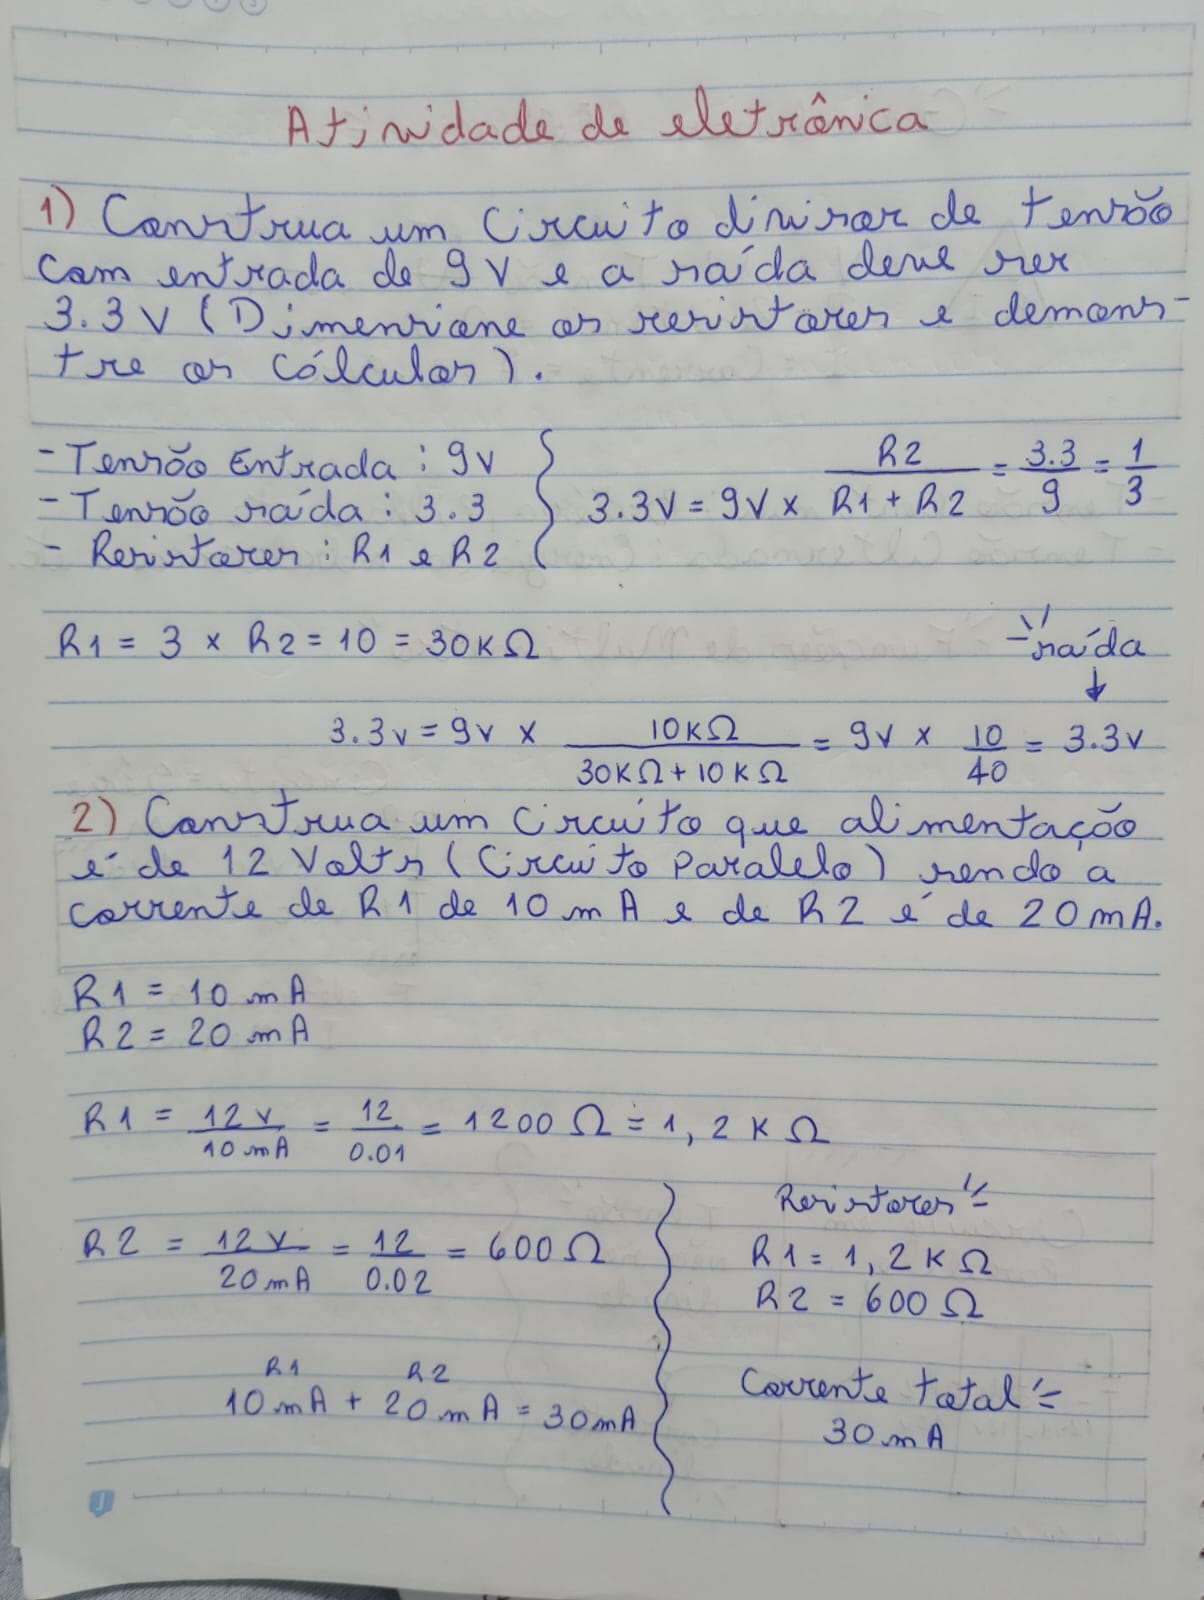 Atividade de eletrônica
1) Construa um circuito divisor de tensão
com entrada de 9V e a saída deve ser
3.3V (Dimensione os resistores e demons-
tre os cálculos).
- Tensão Entrada: 9v
- Tensão saída: 3.3
- Resistores: R1 e R2
3.3V = 9V x R2 / R1 + R2 = 3.3 / 9 = 1 / 3
R1 = 3 x R2 = 10 = 30KΩ
saída
3.3v = 9v x 10KΩ / 30KΩ + 10KΩ = 9v x 10 / 40 = 3.3v
2) Construa um circuito que alimentação
é de 12 Volts (Circuito Paralelo) sendo a
corrente de R1 de 10mA e de R2 é de 20mA.
R1 = 10 mA
R2 = 20 mA
R1 = 12v / 10mA = 12 / 0.01 = 1200Ω = 1,2KΩ
R2 = 12v / 20mA = 12 / 0.02 = 600Ω
R1 R2
10mA + 20mA = 30mA
Resistores
R1 = 1,2KΩ
R2 = 600Ω
Corrente total
30mA
J